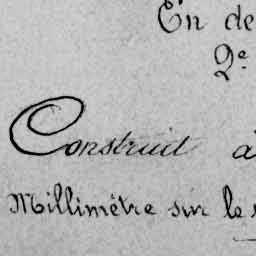 En de
2e
Construit à
Millimétre sur le